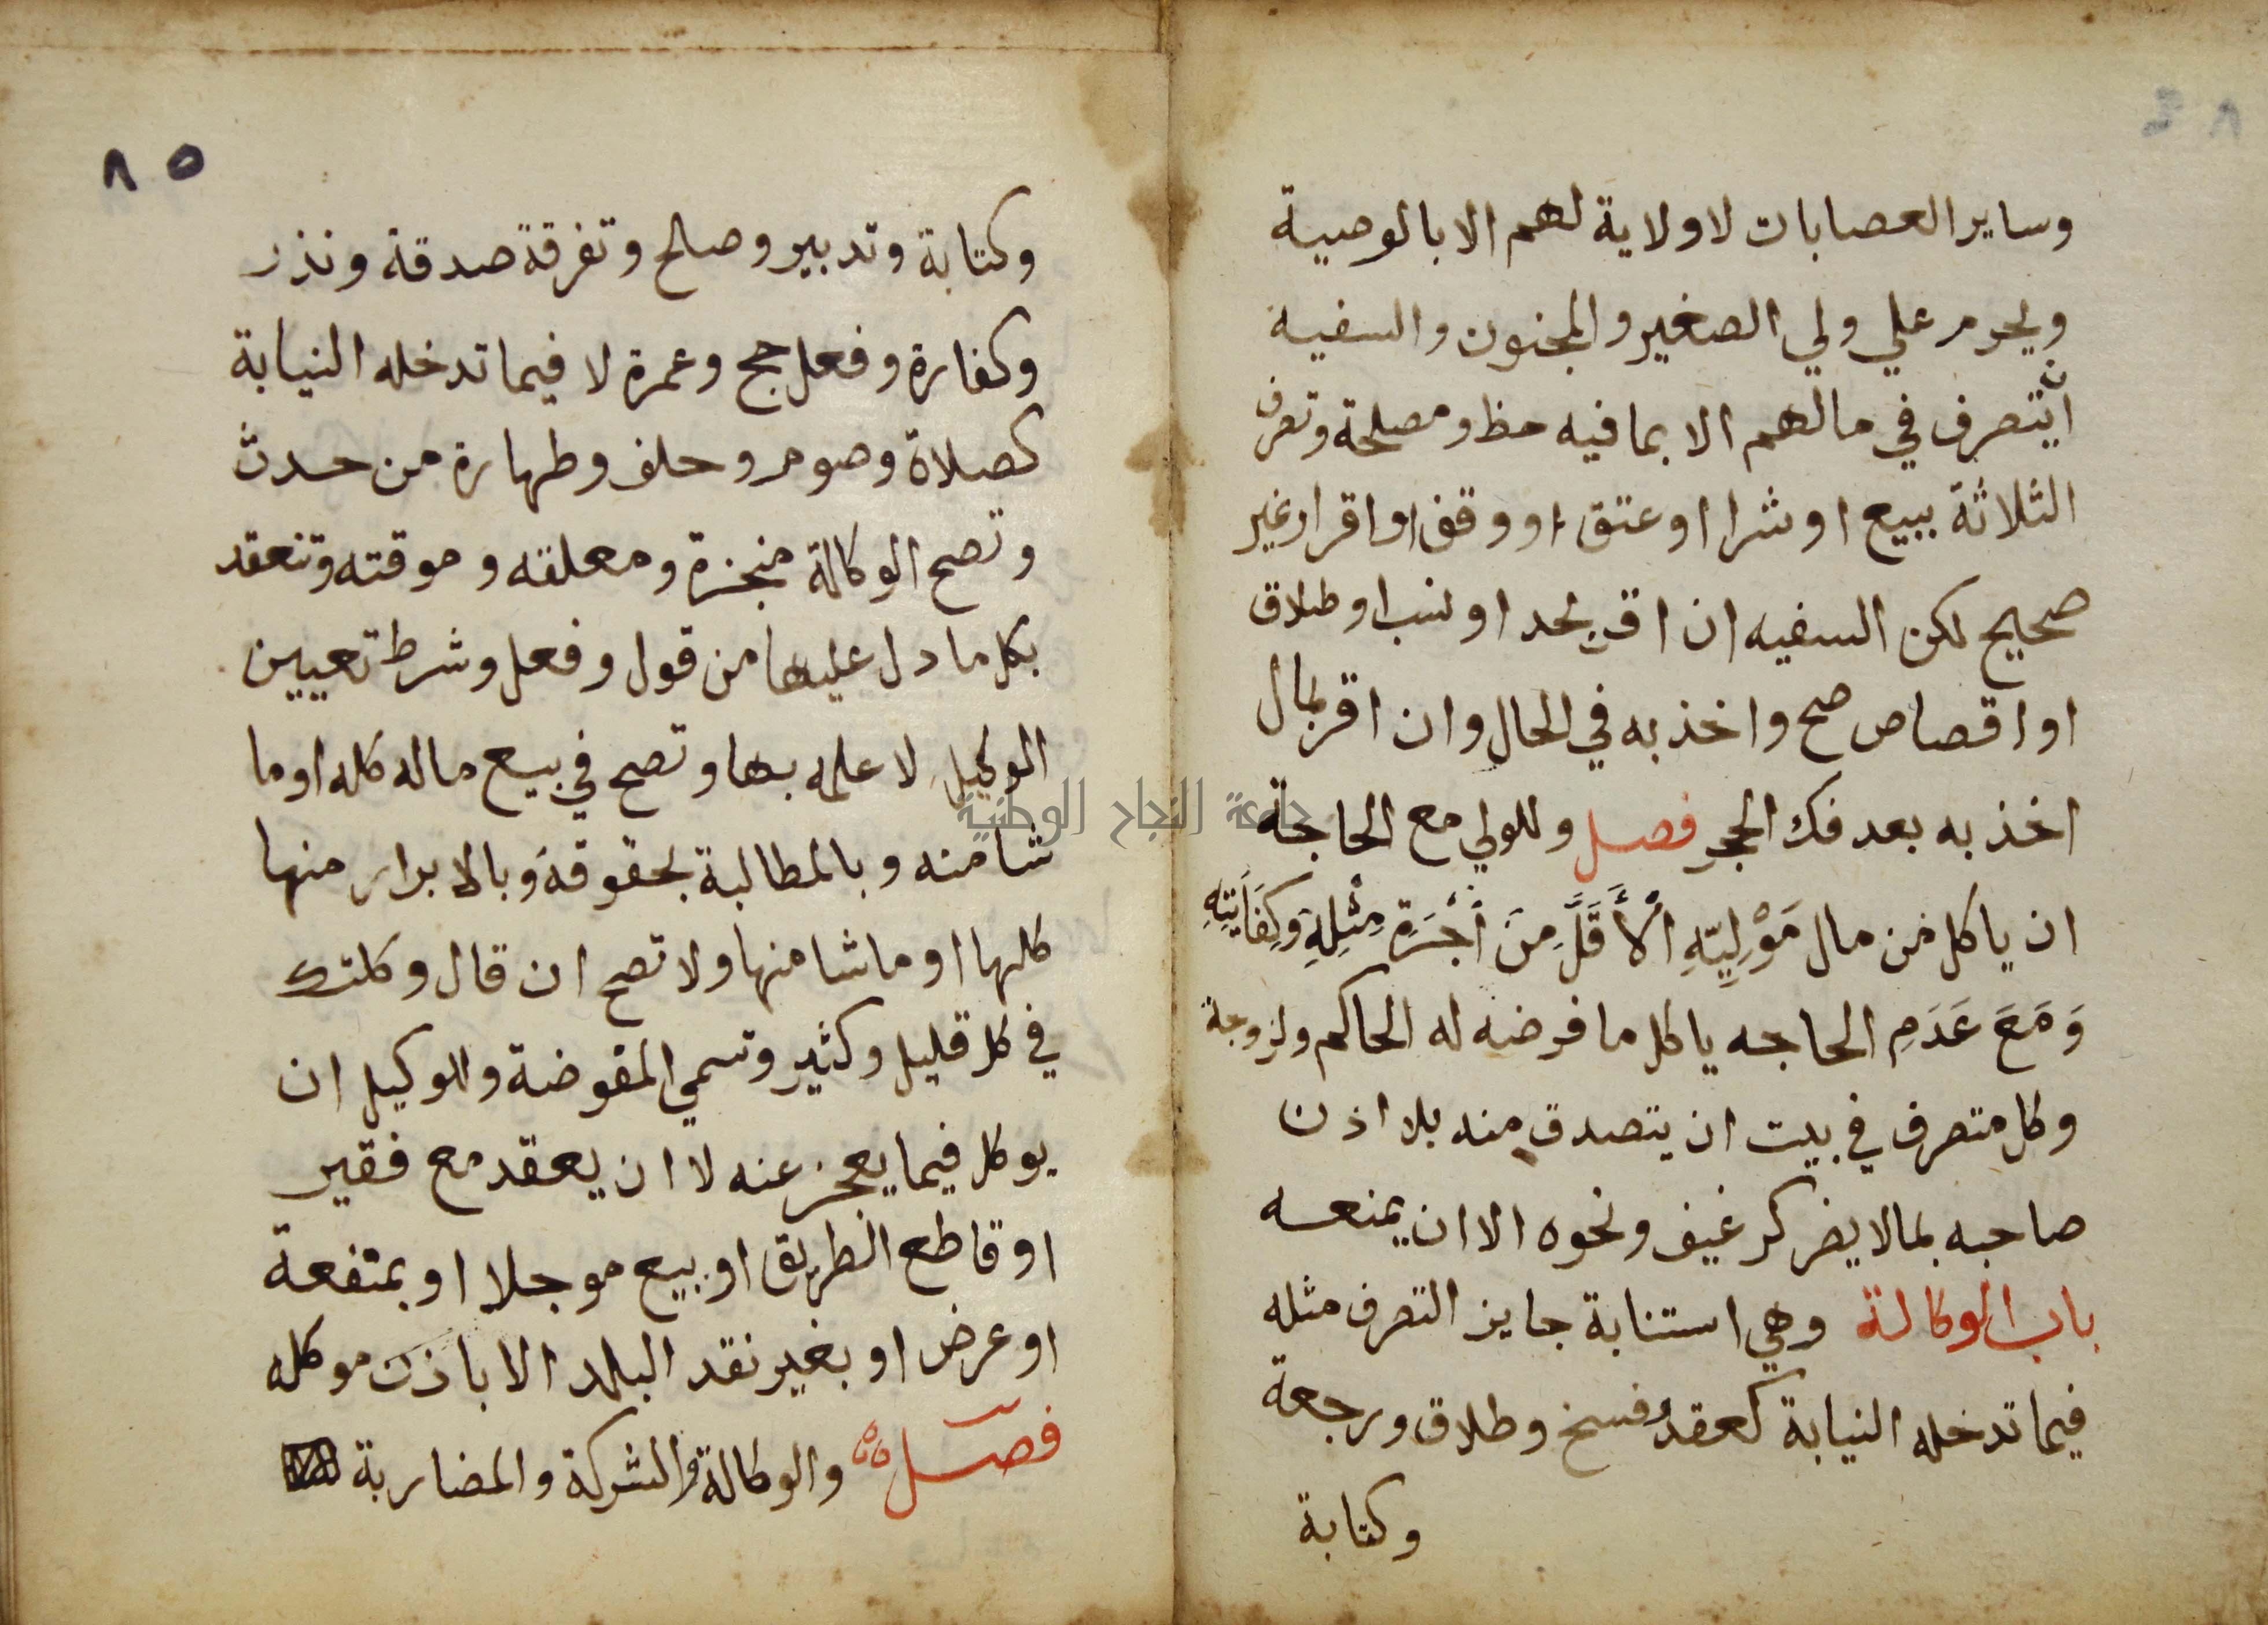 وساير العصابات لا ولاية لهم الا بالوصية
ويحرم علي ولي الصغير والمجنون والسفية
أن يتصرف في مالهم الا بما فيه حظ ومصلحة وتصرف
الثلاثة ببيع او شرا او عتق او وقف او اقرار غير
صحيح لكن السفيه ان اقر بحد او نسب او طلاق
او اقصاص صح واخذ به في الحال وان اقر بمال
اخذ به بعد فك الحجر فصل وللولي مع الحاجة
ان ياكل من مال مَوْلِيّهِ الْأَقَلَّ مِنَ أُجْرَةِ مِثْلِهِ وَكِفَايَتِهِ
وَمَعَ عَدَمِ الحاجه ياكل ما فرضه له الحاكم ولزوجة
وكل متصرف في بيت ان يتصدق منه بلا اذن
صاحبه بما لا يضر كرغيف ونحوه الا ان يمنعه
باب الوكالة وهي استنابة جايز التصرف مثله
فيما تدخله النيابة كعقد وفسخ وطلاق ورجعة
وكتابة
٨٥
وكتابة وتدبير وصلح وتفرقة صدقة ونذر
وكفارة وفعل حج وعمرة لا فيما تدخله النيابة
كصلاة وصوم وحلف وطهارة من حدث
وتصح الوكالة منجزة ومعلقه وموقته وتنعقد
بكل ما دل عليها من قول وفعل وشرط تعيين
الوكيل لا علمه بها وتصح في بيع ماله كله او ما
شا منه وبالمطالبة بحقوقه وبالابرار منها
كلها او ما شا منها ولا تصح ان قال وكلتك
في كل قليل وكثير وتسمي المفوضة وللوكيل ان
يوكل فيما يعجز عنه لا ان يعقد مع فقير
او قاطع الطريق او بيع موجلا او بمنفعة
او عرض او بغير نقد البلد الا باذن موكله
فصل والوكالة والشركة والمضاربة
جامعة النجاح الوطنية